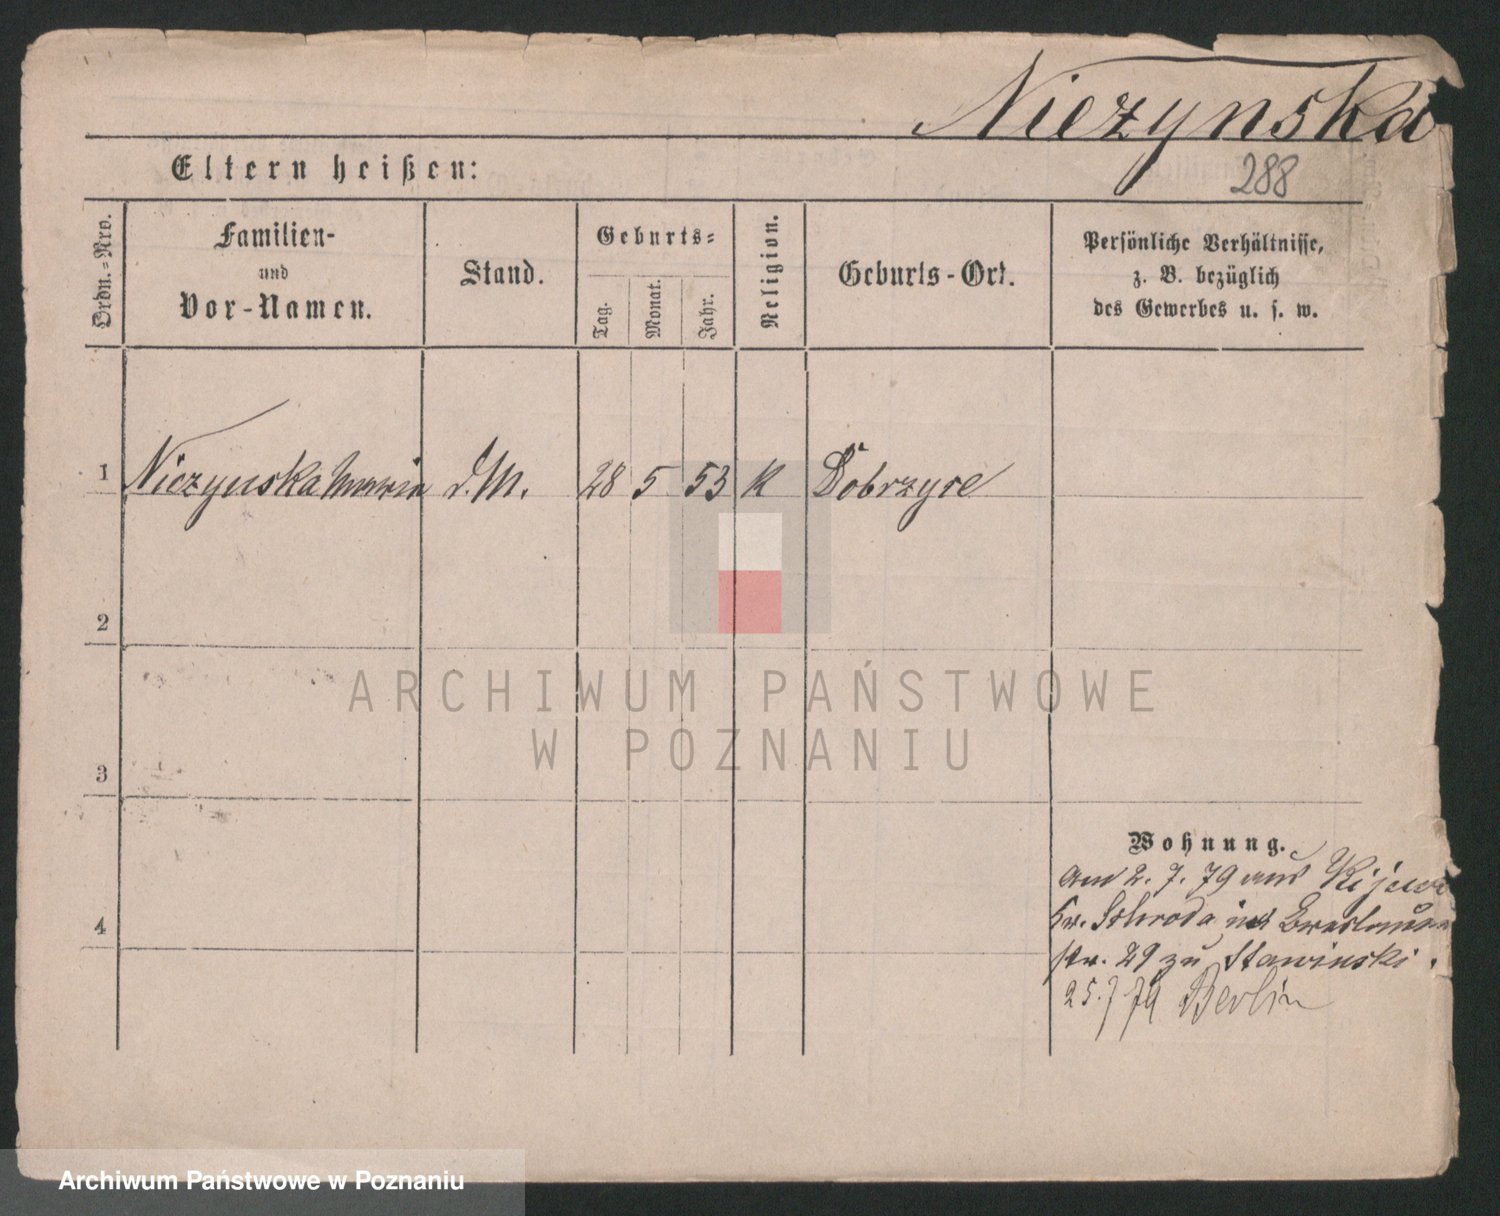 Niezynska
288
Eltern heißen:
Ordn.-Nro.
Familien-
und
Vor-Namen.
Stand.
Geburts-
Tag.
Monat.
Jahr.
Religion.
Geburts-Ort.
Persönliche Verhältnisse,
z. B. bezüglich
des Gewerbes u. s. w.
1 Niezynska Maria d. M. 28 5 53 K Dobrzyce
2
3
4
ARCHIWUM PAŃSTWOWE
W POZNANIU
Wohnung.
am 2. 7. 79 aus Kijewo
Kr. Schroda in Breslauer
str. 29 zu Stawinski.
25. 7 79 Berlin
Archiwum Państwowe w Poznaniu